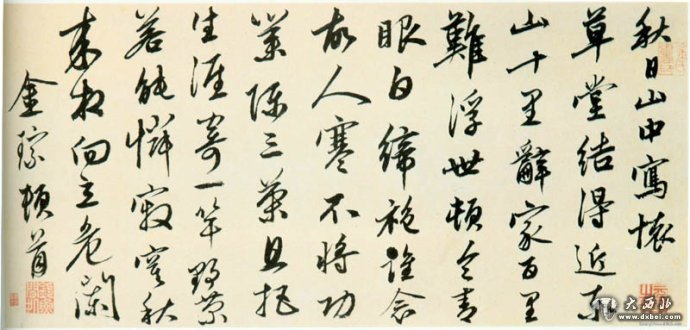 秋日山中寫懷
草堂結得近東
山十里辭家百里
難浮世頓令青
眼白綈袍誰念
故人寒不將功
業陳三策且把
生涯寄一竿野菊
若能憐寂寞秋
来相向立危闌
金琮頓首
大西北网
www.dxbei.com